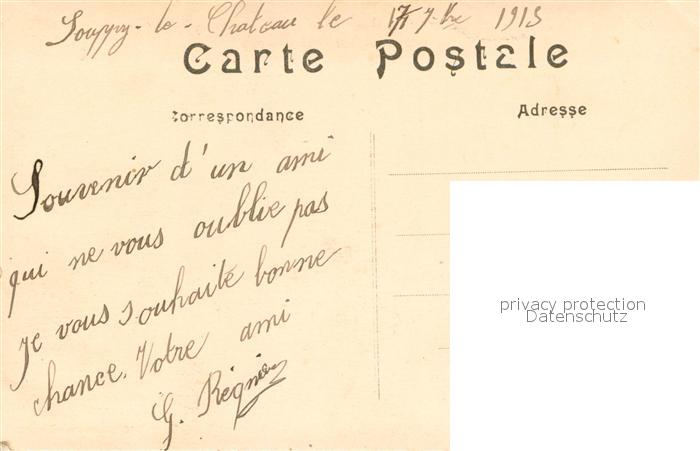 le - Chateau le 7bre 1915
Carte Postale
Correspondance
Adresse
Souvenir d'un ami
qui ne vous oublie pas
je vous souhaite bonne
chance. Votre ami
G. Régnier
privacy protection
Datenschutz